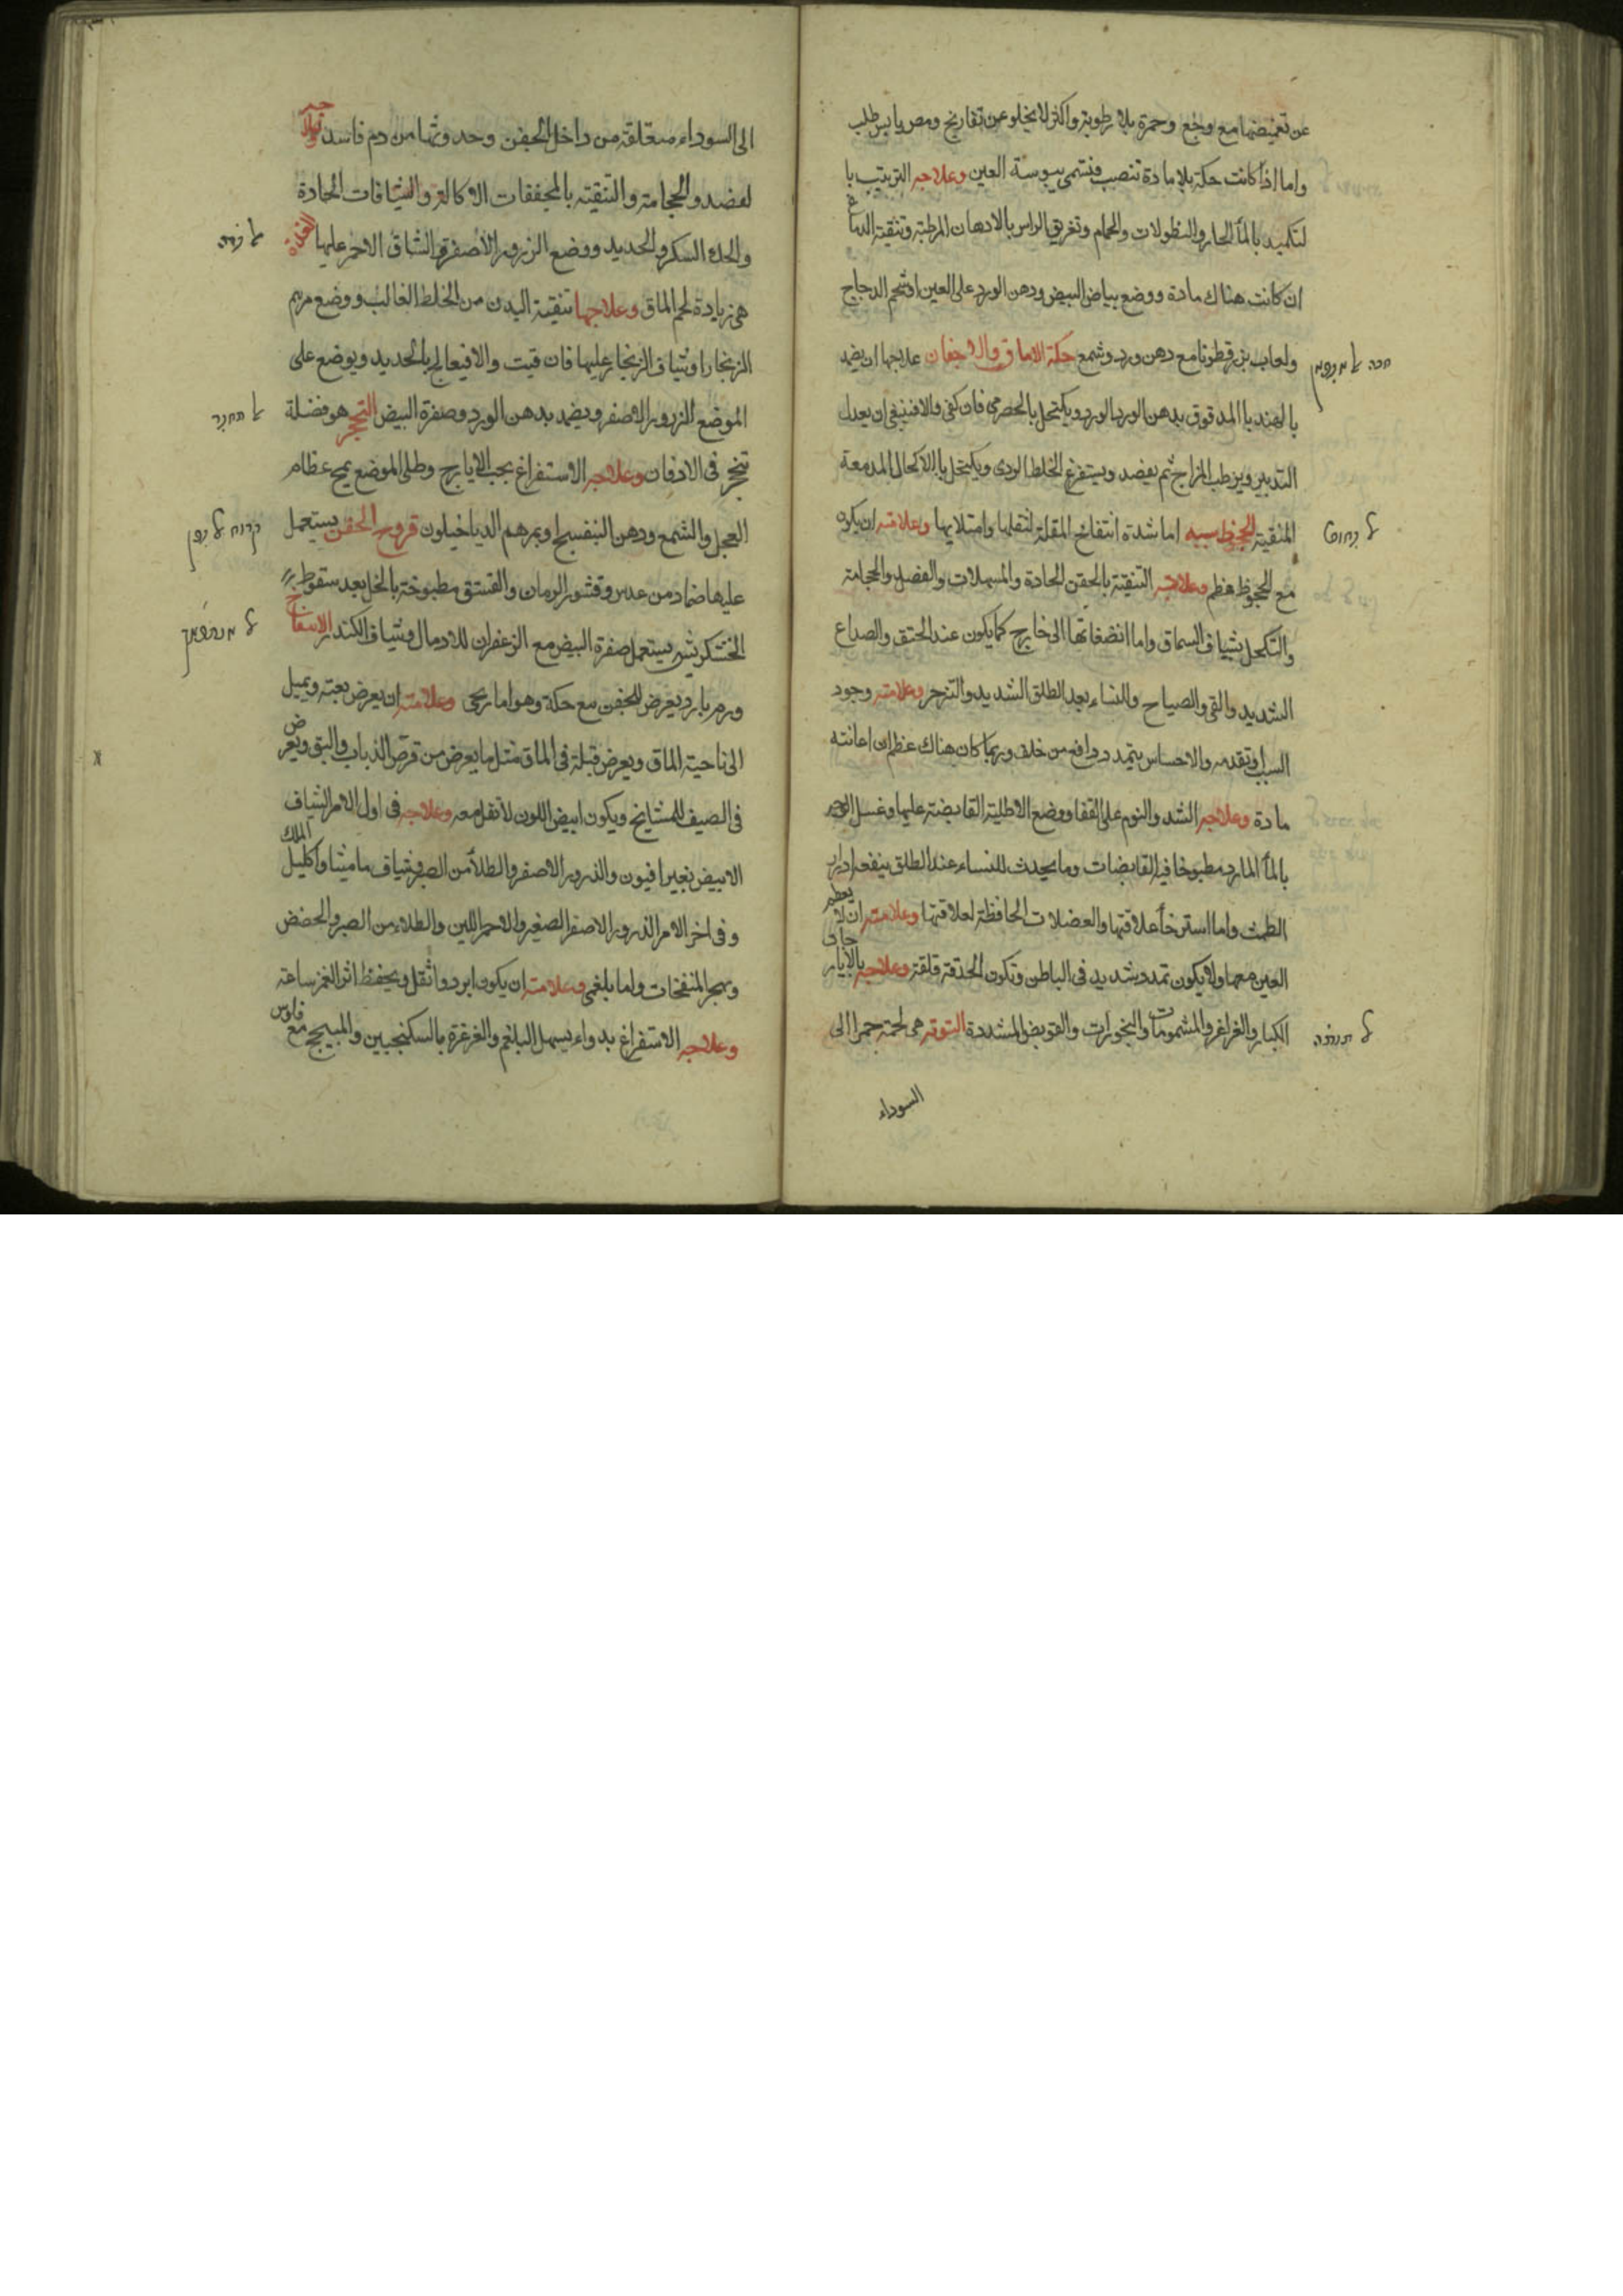 عن تغميضها مع وجع وحمرة بلا رطوبة واكثر لا يخلو عن تفاريج ومص يابس طلب
واما اذا كانت حكة بلا مادة تنصب فتسمى يبوسة العين وعلاجه الترتيب با
لتكميد بالمأ الحار والنطولات والحمام وتغريق الراس بالادهان المرطبة وتنقية الدماغ
ان كانت هناك مادة ووضع بياض البيض ودهن الورد على العين او شحم الدجاج
ولعاب بزر قطونا مع دهن ورد وشمع حكة الاماق والاجفان علاجها ان يضمد
بالهندبا المدقوق بدهن الورد ويكتحل بالحصرمى فان كفى والا فينبغى ان يعدل
التدبير ويرطب المزاج ثم يفصد ويستفرغ الخلط الردى ويكتحل بالاكحال المدمعة
المنقية الجحوظ سببه اما شدة انتفاخ المقلة لثقلها وامتلايها وعلامته ان يكون
مع الجحوظ عظم وعلاجه التنقية بالحقن الحادة والمسهلات والفصد والحجامة
والتكحل بشياف السماق واما انضغاطها الى خارج كما يكون عند الخنق والصداع
الشديد والقى والصياح والنساء بعد الطلق الشديد والتزحر وعلامته وجود
السبب وتقدمه والاحساس بتمدد دافع من خلف وربما كان هناك عظم ان اعانته
مادة وعلاجه الشد والنوم على القفا ووضع الاطلية القابضة عليها وغسل الوجه
بالمأ البارد مطبوخا فيه القابضات وما يحدث للنساء عند الطلق ينفعه ادرار
الطمث واما استرخأ علاقتها والعضلات الحافظة لعلاقتها وعلامته ان لا يعظم
العين معها ولا يكون تمدد شديد فى الباطن وتكون الحدقة قلقة وعلاجه بالايارجات
الكبار والغراغر والمشمومات والبخورات والقوابض المشددة التوتة هى لحمة حمرا الى
السوداء
الى السوداء متعلقة من داخل الجفن وحدوثها من دم فاسد
لفصد والحجامة والتنقية بالمجففات الاكالة والشيافات الحادة
والحك السكر والحديد ووضع الزرور الاصفر والشياف الاحمر عليها الغدة
هى زيادة لحم الماق وعلاجها تنقية البدن من الخلط الغالب ووضع مرهم
الزنجار او شياف الزنجار عليها فان فنيت والا فيعالج بالحديد ويوضع على
الموضع الزرور الاصفر ويضمد بدهن الورد وصفرة البيض التحجر هو فضلة
تتحجر فى الاجفان وعلاجه الاستفراغ بحب الايارج وطلى الموضع بمخ عظام
العجل والشمع ودهن البنفسج او بمرهم الدياخيلون قروح الجفن يستعمل
عليها ضماد من عدس وقشور الرمان والفستق مطبوخة بالخل بعد سقوط
الخشكريشة يستعمل صفرة البيض مع الزعفران للادمال وشياف الكندر الانتفاخ
ورم بارد يعرض للجفن مع حكة وهو اما ريحى وعلامته ان يعرض بغتة ويميل
الى ناحية الماق ويعرض قبله فى الماق مثل ما يعرض من قرص الذباب والبق ويعرض
فى الصيف للمشايخ ويكون ابيض اللون لا ثقل معه وعلاجه فى اول الامر الشياف
الابيض بغير افيون والذرور الاصفر والطلأ من الصبر وشياف ماميثا واكليل الملك
وفى اخر الامر الذرور الاصفر الصغير والاحمر اللين والطلاء من الصبر والحضض
وبهجر المنفخات واما بلغمى وعلامته ان يكون ابرد واثقل ويحفظ اثر الغمز ساعة
وعلاجه الاستفراغ بدواء يسهل البلغم والغرغرة بالسكنجبين والميبختج مع فلوس